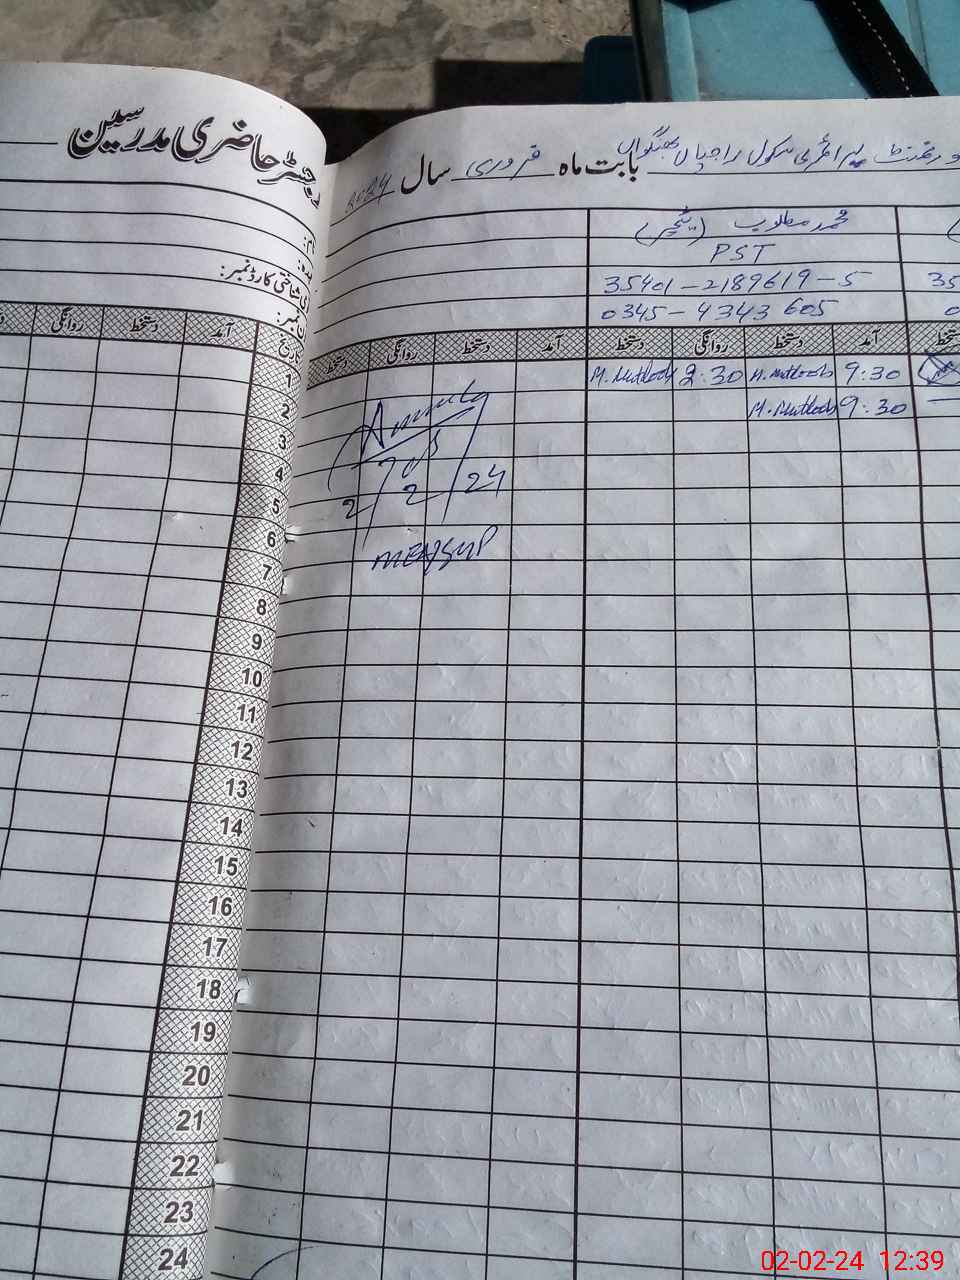 رجسٹر حاضری مدرسین
گورنمنٹ پرائمری سکول راجپال بھنگواں بابت ماہ فروری سال 2024
نام:
عہدہ:
شناختی کارڈ نمبر:
فون نمبر:
محمد مطلوب (ٹیچر)
PST
35401-2189619-5
0345-4343605
تاریخ آمد دستخط روانگی
آمد دستخط روانگی دستخط آمد دستخط روانگی دستخط
1 9:30 M.Mutloob 2:30 M.Mutloob
2 9:30 M.Mutloob
3
4
5
6
7
8
9
10
11
12
13
14
15
16
17
18
19
20
21
22
23
24
2 2 24
02-02-24 12:39